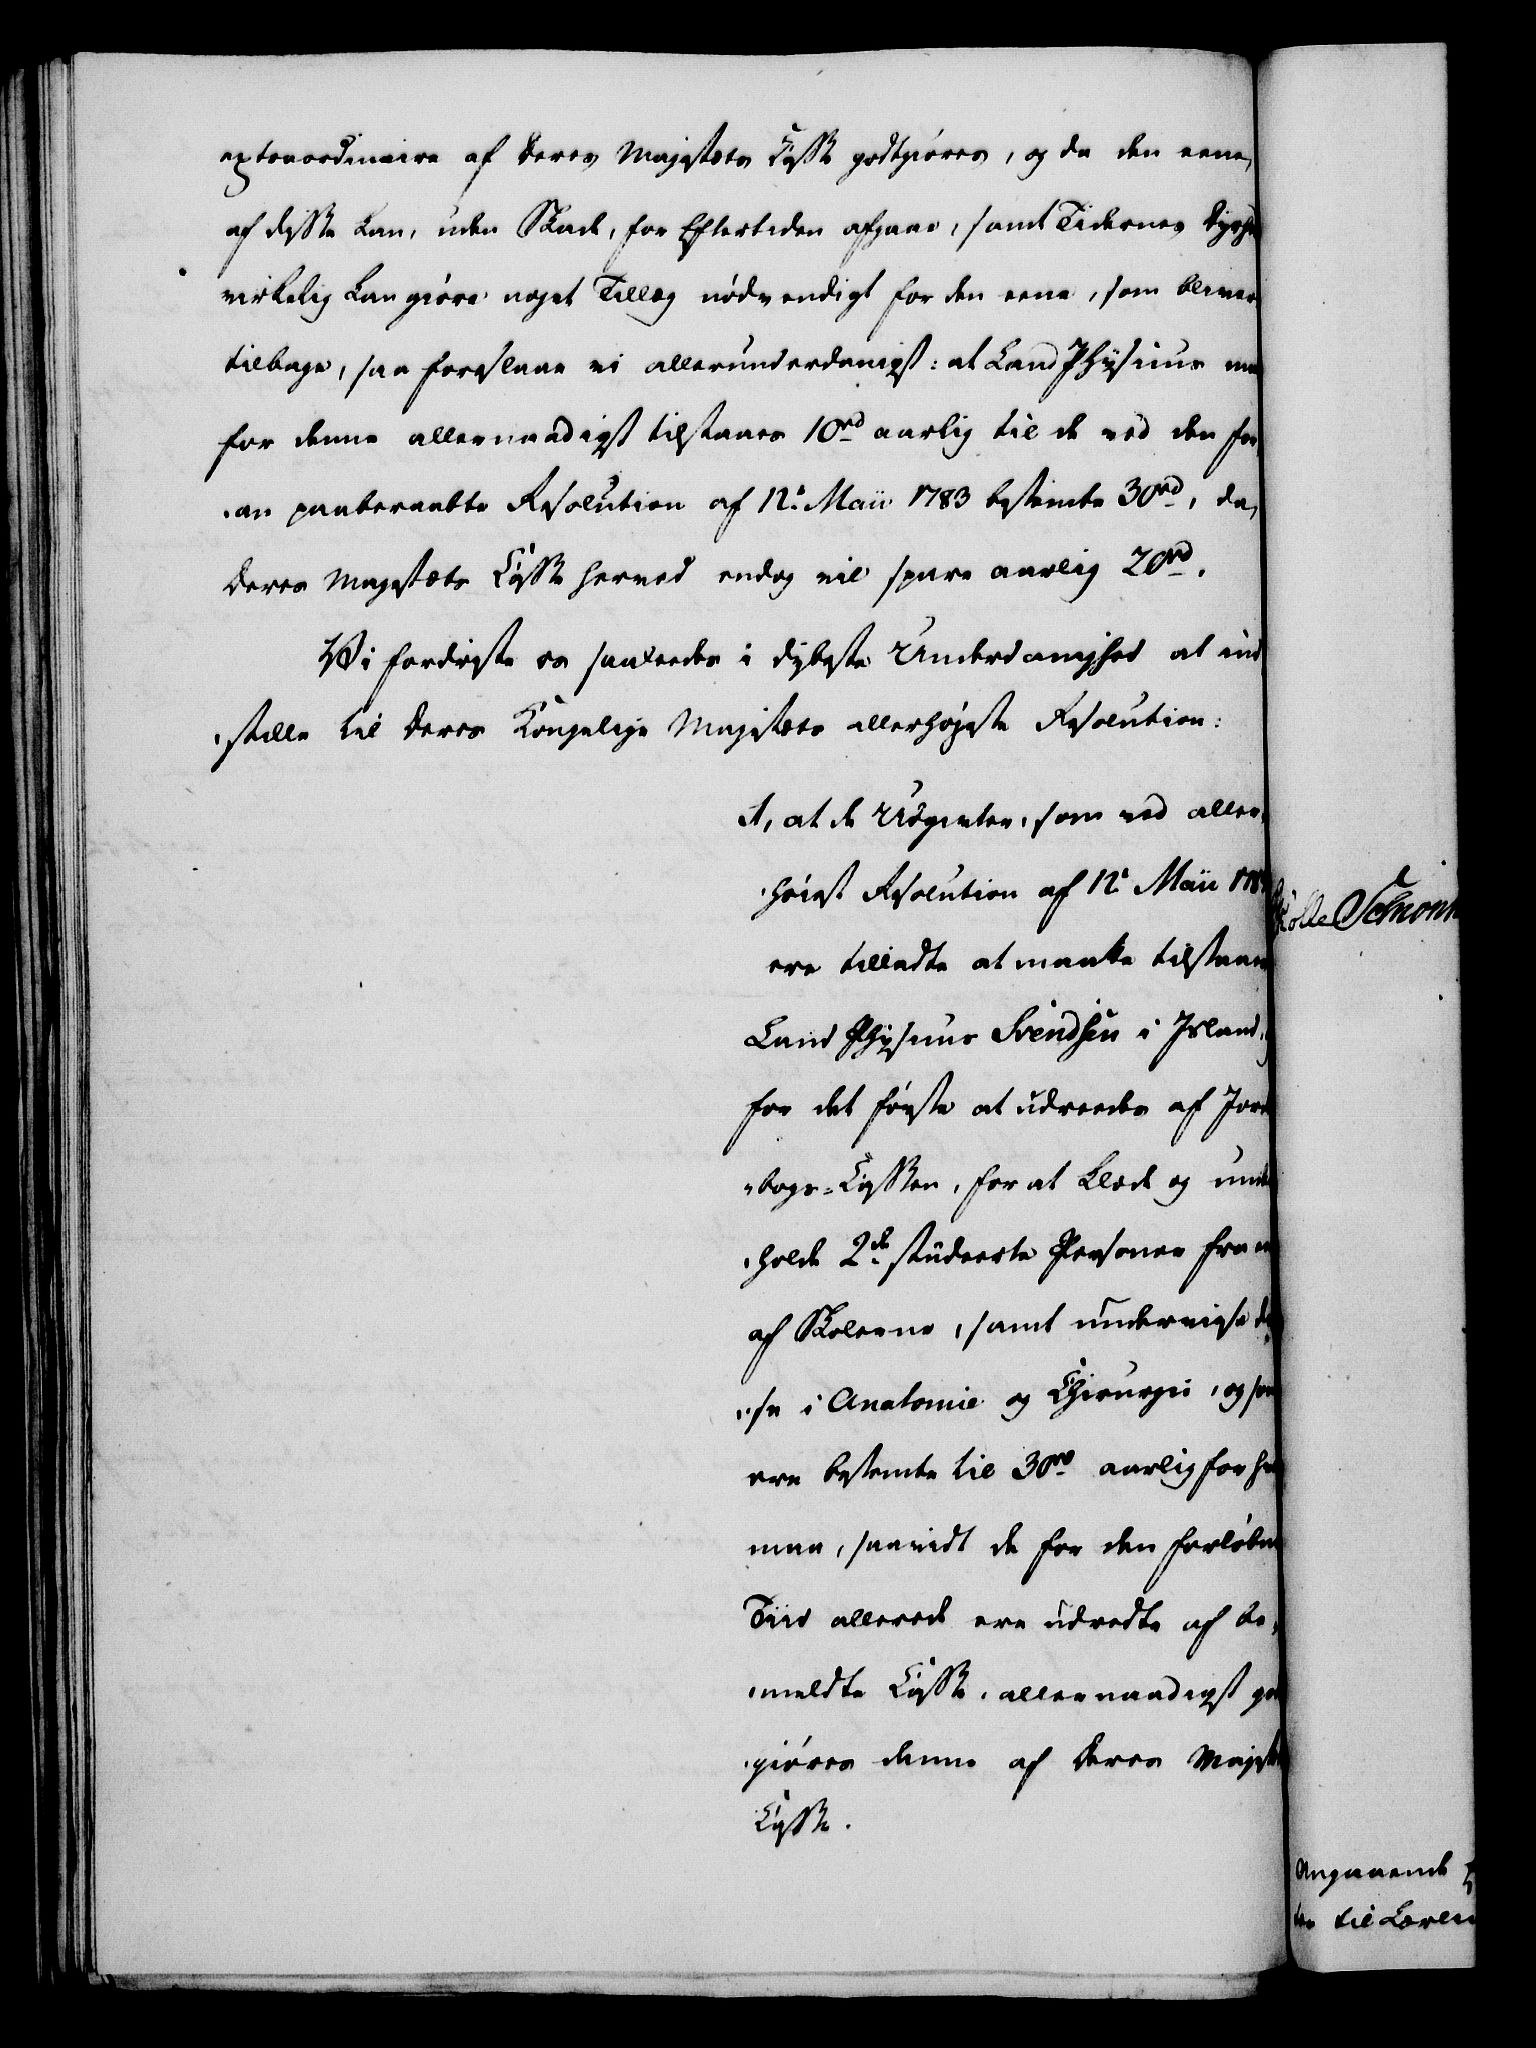 extraordinaire af Deres Majestæts Casse godtgiøres, og da den eene,
af disse kan, uden Skade, for Eftertiden afgaae, samt Tidernes Dyrhe
virkelig kan giøre noget Tillæg nødvendigt for den eene, som bliver
tilbage, saa foreslaae vi allerunderdanigst: at Land Physicus maa
for denne allernaadigst tilstaaes 10rd aarlig til de ved den for
an paaberaabte Resolution af 12t Maii 1783 bestemte 30rd, da,
Deres Majestæts Casse herved endog vil spare aarlig 20rd.
Vi fordriste os saaledes i dybeste Underdanighed at ind
stille til Deres Kongelige Majestæts allerhøjeste Resolution:
1, at de Udgivter, som ved aller
høiest Resolution af 12t Maii 178
ere tilladte at maatte tilstaaes
Land Physicus Svendsen i Island,
for det første at udreedes af Jord
bogs-Cassen, for at klæde og under
holde 2de studeerte Personer fra
af Skolerne, samt underviise di
se i Anatomie og Chirurgie, og som
ere bestemte til 30rd aarlig for h
maa, saavidt de for den forløbne
Tiid allerede ere udredte af be
meldte Casse, allernaadigst god
giøres denne af Deres Majest
Casse.
Angaaende
til